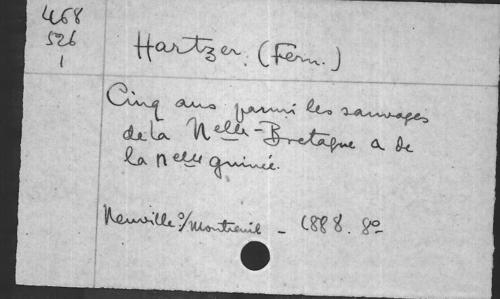 468
526
1
Hartzer. (Fern.)
Cinq ans parmi les sauvages
de la Nelle-Bretagne & de
la Nelle guinée.
Neuville s/Montreuil - 1888. 8º